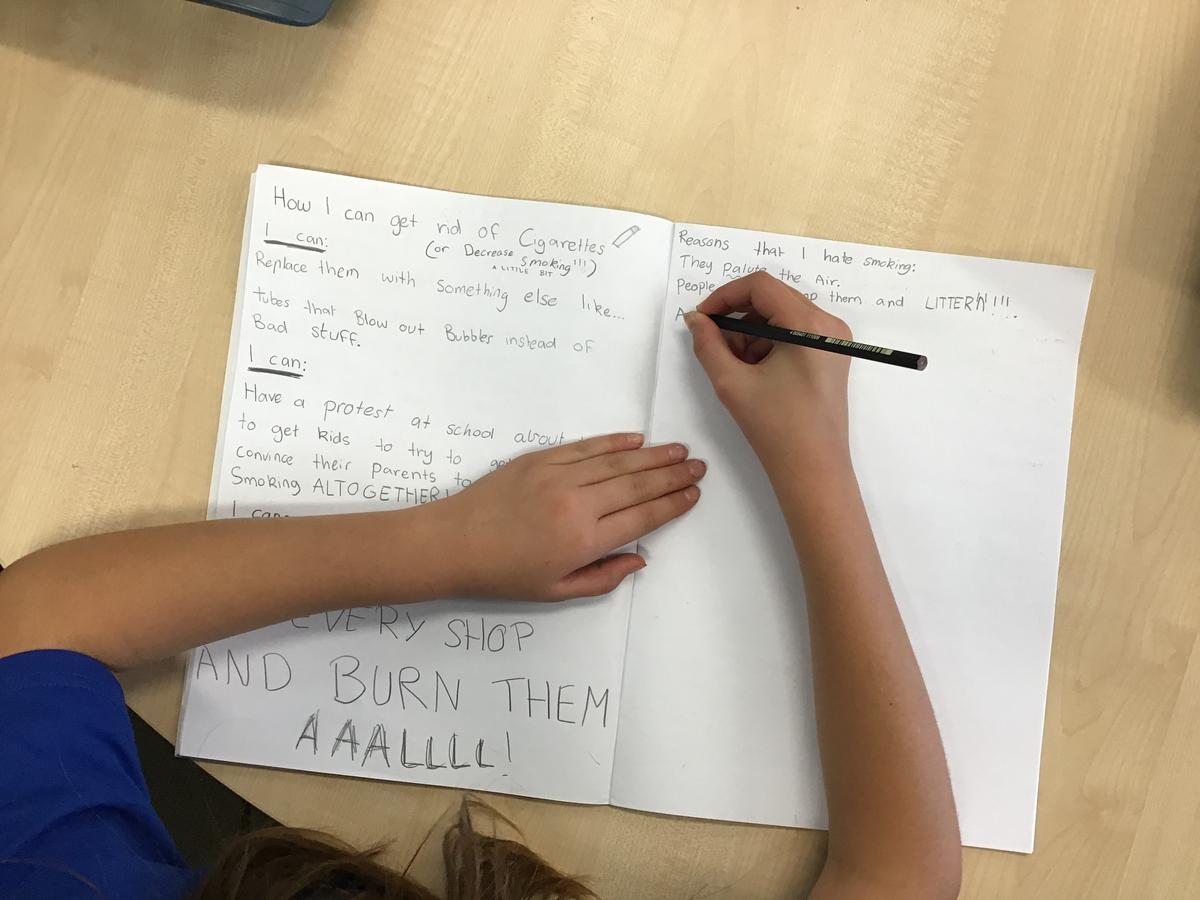 How I can get rid of Cigarettes
(or Decrease Smoking!!!)
A LITTLE BIT
I can:
Replace them with something else like...
tubes that Blow out Bubbles instead of
Bad stuff.
I can:
Have a protest at school about
to get kids to try to
convince their Parents to
Smoking ALTOGETHER!
I can:
EVERY SHOP
AND BURN THEM
AAALLLL!
Reasons that I hate smoking:
They palute the Air.
People them and LITTER!!!!.